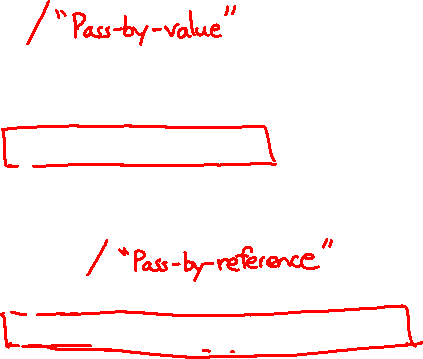 "Pass-by-value"
"Pass-by-reference"